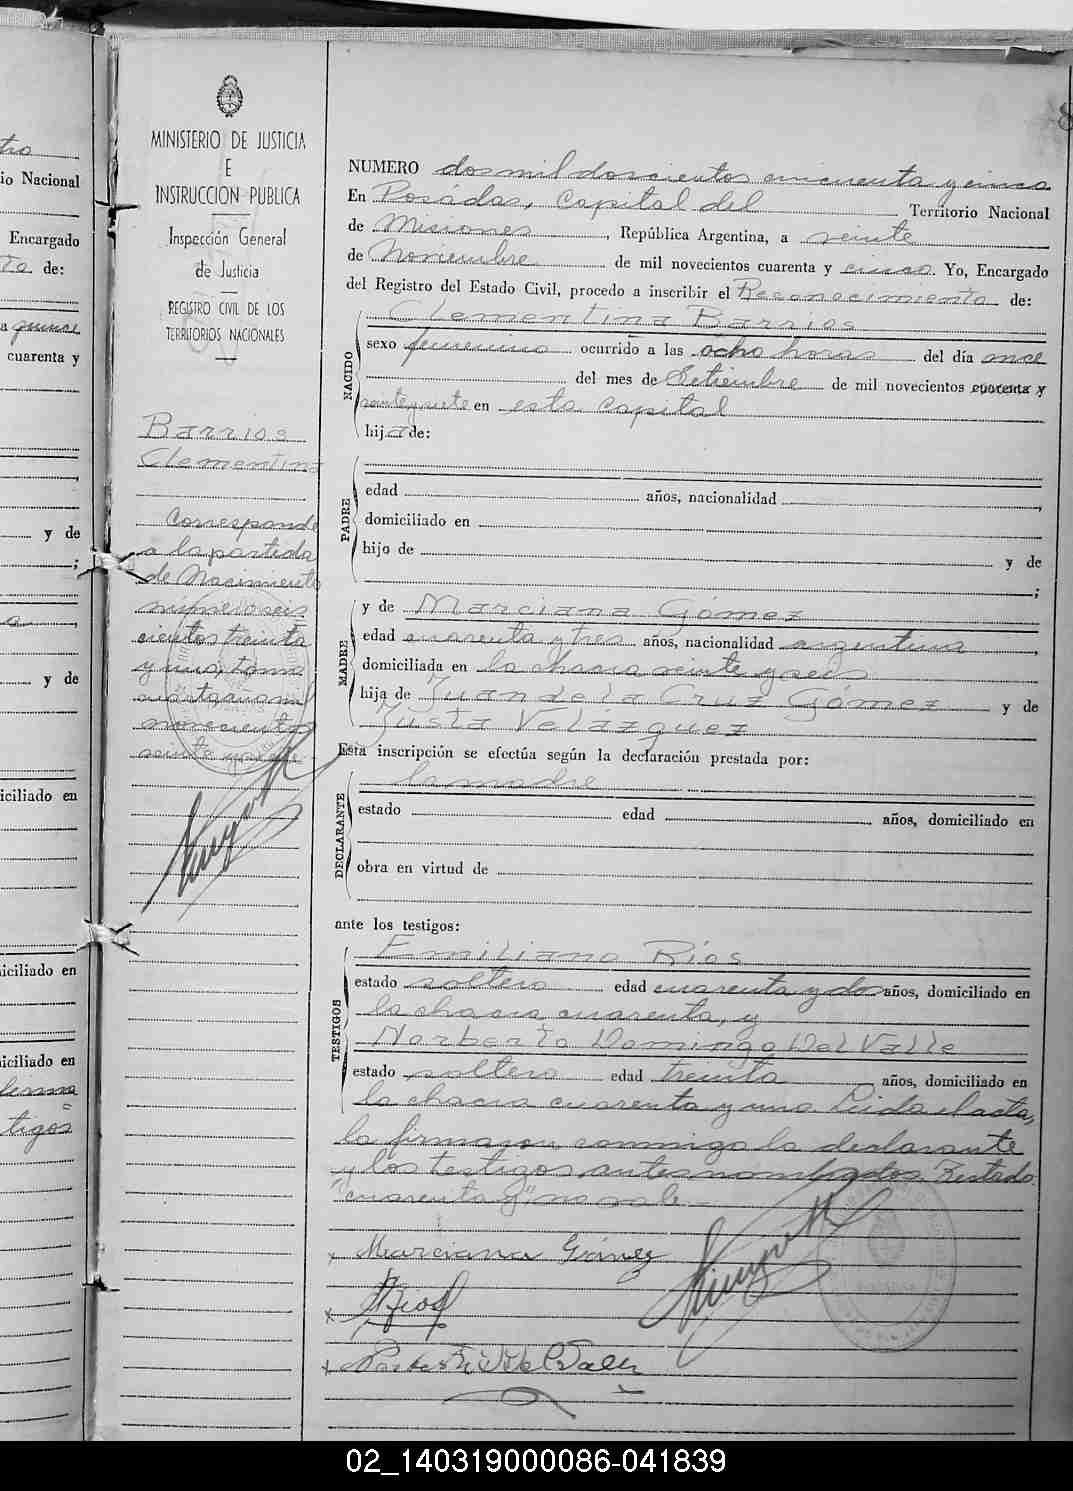 MINISTERIO DE JUSTICIA
E
INSTRUCCION PUBLICA
Inspección General
de Justicia
REGISTRO CIVIL DE LOS
TERRITORIOS NACIONALES
Barrios
Clementina
Corresponde
a la partida
de Nacimiento
número seis
cientos treinta
y uno, tomo
cuarto año mil
novecientos
veinte y siete
NUMERO dos mil doscientos cincuenta y cinco
En Posadas, Capital del Territorio Nacional
de Misiones, República Argentina, a veinte
de Noviembre de mil novecientos cuarenta y cinco. Yo, Encargado
del Registro del Estado Civil, procedo a inscribir el Reconocimiento de:
Clementina Barrios
NACIDO
sexo femenino ocurrido a las ocho horas del día once
del mes de Setiembre de mil novecientos cuarenta y
veinte y siete en esta capital
hija de:
PADRE
edad años, nacionalidad ,
domiciliado en
hijo de y de
;
MADRE
y de Marciana Gómez
edad cuarenta y tres años, nacionalidad argentina,
domiciliada en la chacra veinte y seis
hija de Juan de la Cruz Gómez y de
Justa Velázquez
Esta inscripción se efectúa según la declaración prestada por:
DECLARANTE
la madre
estado edad años, domiciliado en
obra en virtud de
ante los testigos:
TESTIGOS
Emiliano Ríos
estado soltero edad cuarenta y dos años, domiciliado en
la chacra cuarenta, y
Norberto Domingo Del Valle
estado soltero edad treinta años, domiciliado en
la chacra cuarenta y uno. Leída el acta,
la firmaron conmigo la declarante
y los testigos antes nombrados. Testado:
"cuarenta y", no vale.
x Marciana Gómez
x Rios
x
tro
io Nacional
Encargado
to de:
a quince
cuarenta y
y de
;
y de
iciliado en
iciliado en
iciliado en
tigos
02_140319000086-041839